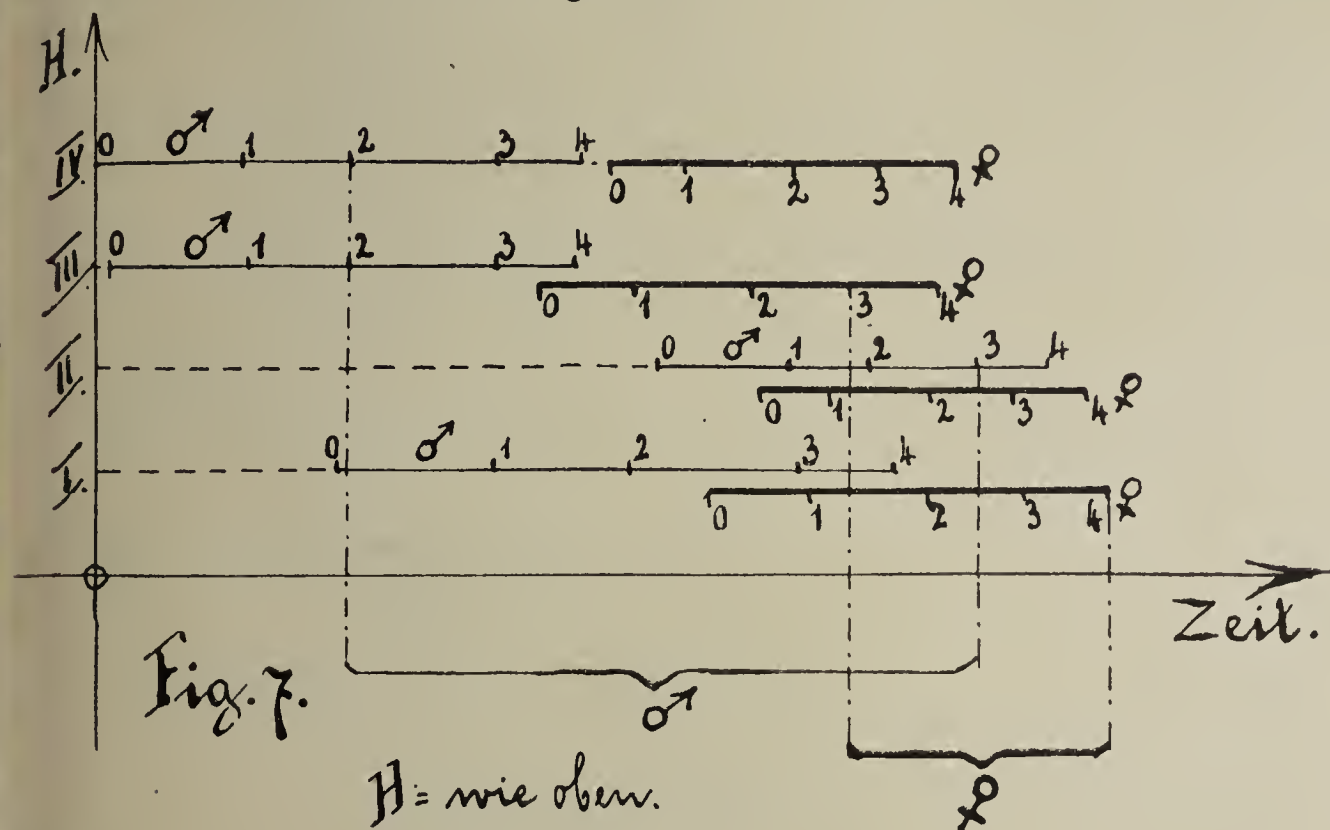 H.
IV. 0 ♂ 1 2 3 4
0 1 2 3 4 ♀
III. 0 ♂ 1 2 3 4
0 1 2 3 4 ♀
II. 0 ♂ 1 2 3 4
0 1 2 3 4 ♀
I. 0 ♂ 1 2 3 4
0 1 2 3 4 ♀
Zeit.
Fig. 7.
♂
♀
H = wie oben.